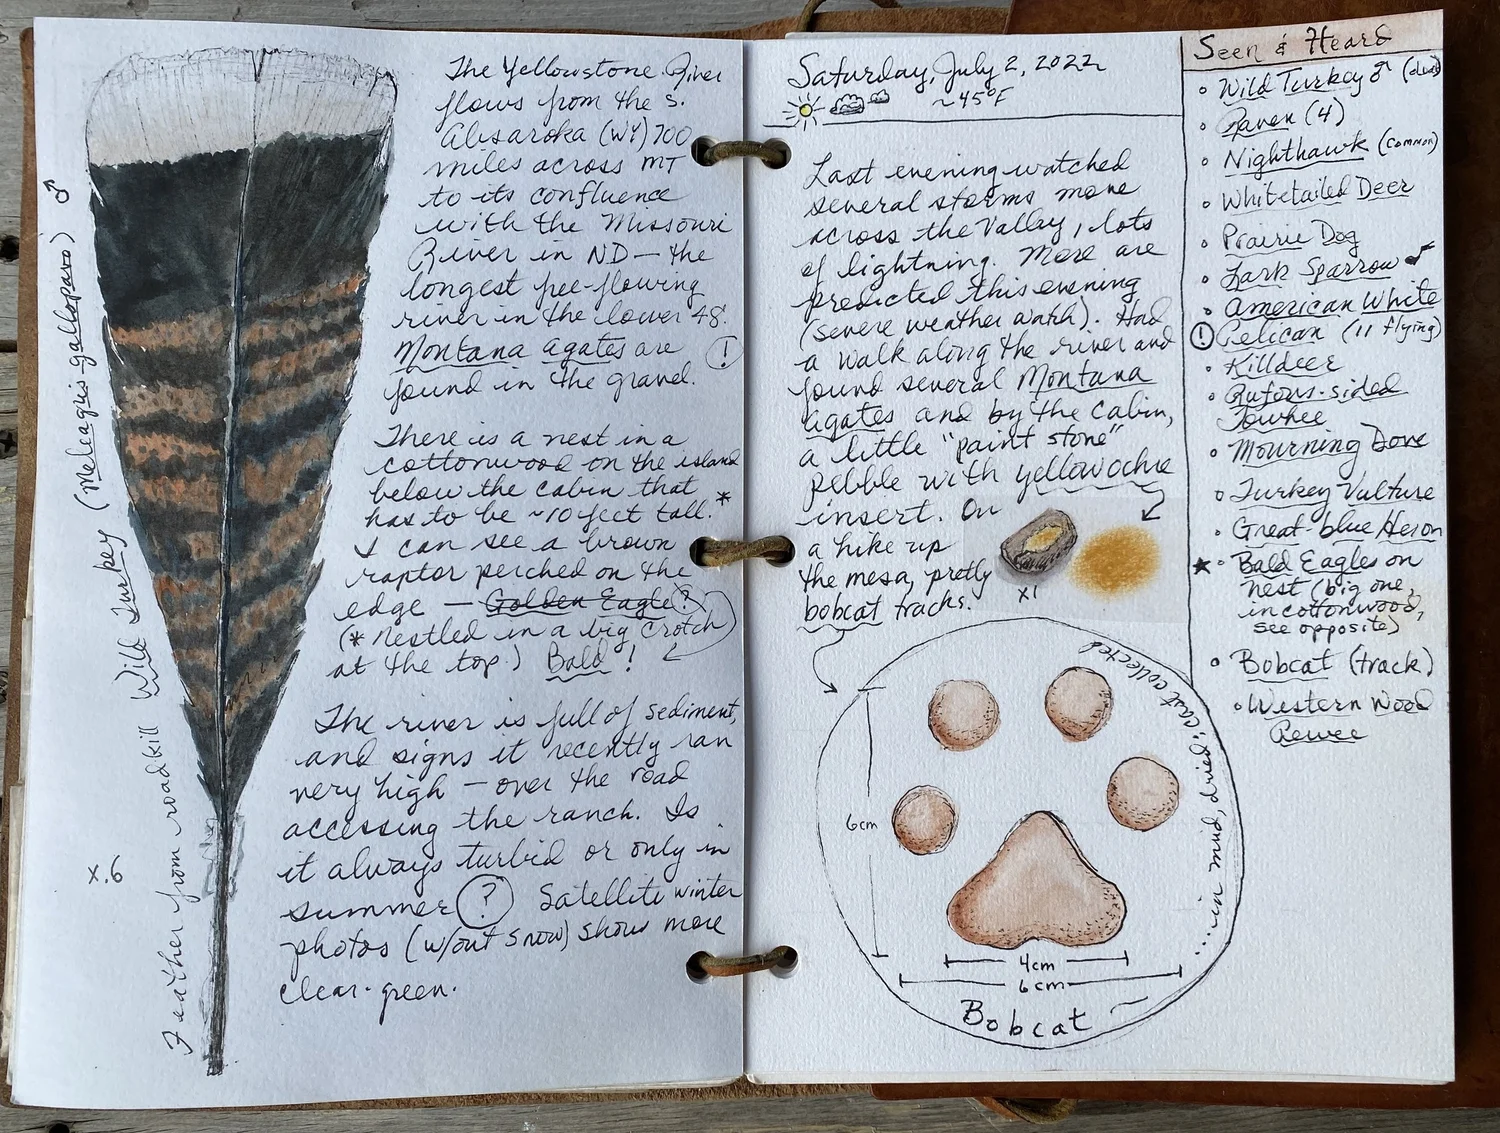 The Yellowstone River
flows from the S.
Absaroka (WY) 700
miles across MT
to its confluence
with the Missouri
River in ND — the
longest free-flowing
river in the lower 48.
Montana agates are (!)
found in the gravel.
There is a nest in a
cottonwood on the island
below the cabin that
has to be ~10 feet tall.*
I can see a brown
raptor perched on the
edge — Golden Eagle?
(* nestled in a big crotch
at the top.) Bald!
The river is full of sediment,
and signs it recently ran
very high — over the road
accessing the ranch. Is
it always turbid or only in
summer (?) Satellite winter
photos (w/out snow) shows more
clear-green.
Feather from roadkill Wild Turkey (Meleagris gallopavo) ♂
x.6
Saturday, July 2, 2022
~45°F
Last evening watched
several storms move
across the Valley, lots
of lightning. More are
predicted this evening
(severe weather watch). Had
a walk along the river and
found several Montana
agates and by the cabin,
a little "paint stone"
pebble with yellow ochre
insert. On
a hike up
the mesa, pretty
bobcat tracks.
x1
...in mud, dried; cast collected
6cm
4cm
6cm
Bobcat
Seen & Heard
• Wild Turkey ♂ (dead)
• Raven (4)
• Nighthawk (common)
• Whitetailed Deer
• Prairie Dog
• Lark Sparrow ♪
• American White
(!) Pelican (11 flying)
• Killdeer
• Rufous-sided
Towhee
• Mourning Dove
• Turkey Vulture
• Great-blue Heron
★ Bald Eagles on
nest (big one,
in cottonwood,
see opposite)
• Bobcat (track)
• Western Wood
Pewee